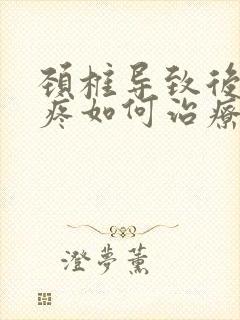 颈柱导致後
疼如何治療
澄夢薰